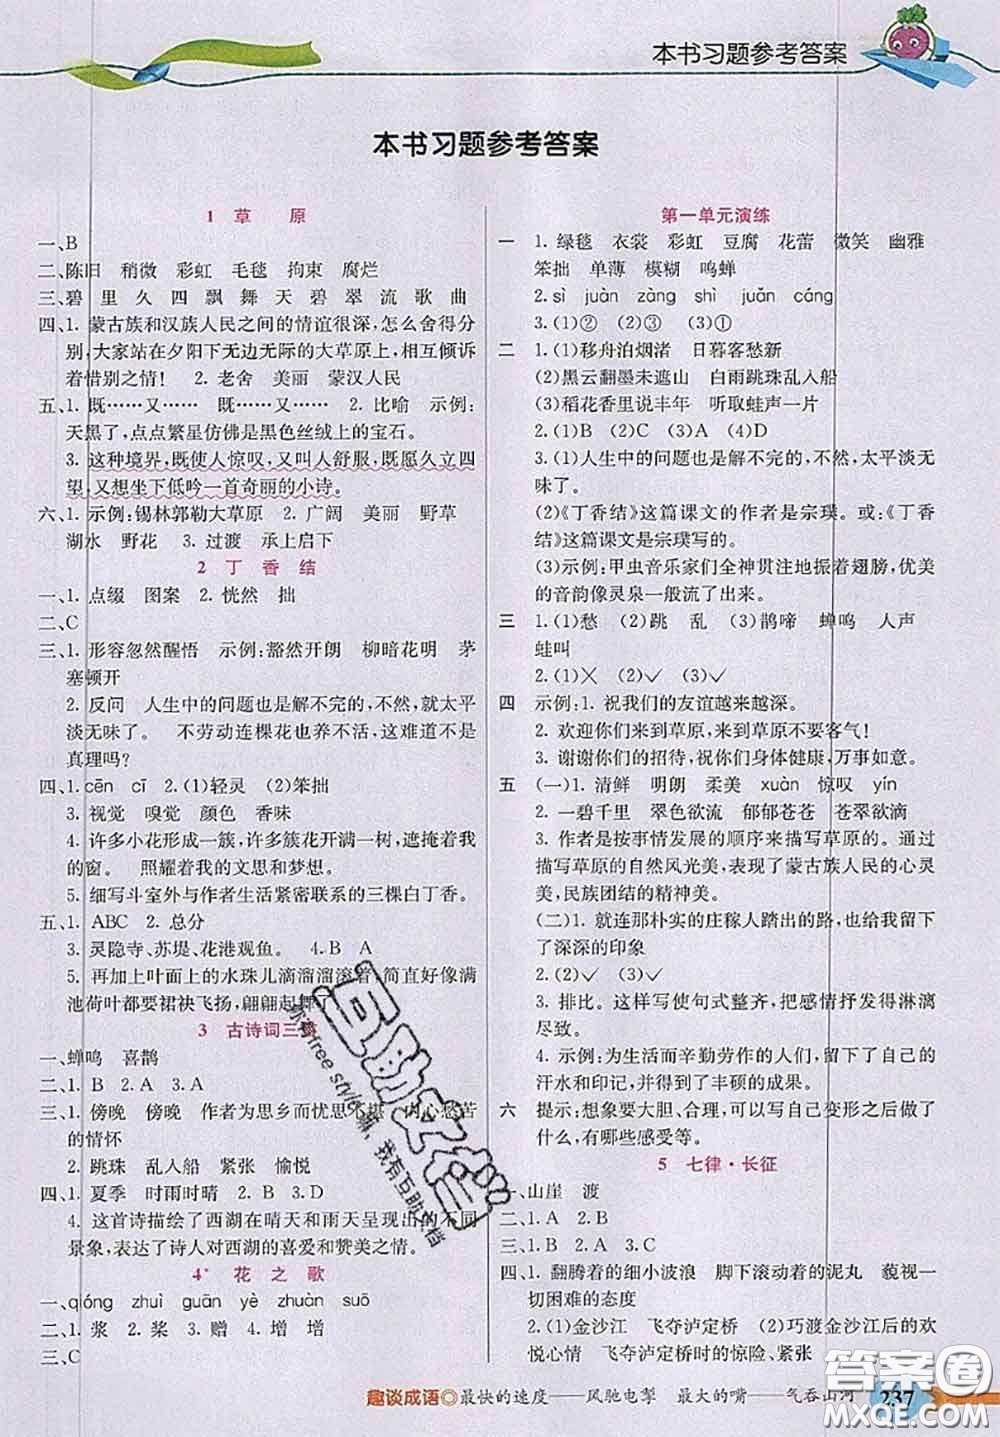 本书习题参考答案
本书习题参考答案
1 草 原
一、B
二、陈旧 稍微 彩虹 毛毯 拘束 腐烂
三、碧 里 久 四 飘 舞 天 碧 翠 流 歌 曲
四、1. 蒙古族和汉族人民之间的情谊很深,怎么舍得分
别,大家站在夕阳下无边无际的大草原上,相互倾诉
着惜别之情! 2. 老舍 美丽 蒙汉人民
五、1. 既……又…… 既……又…… 2. 比喻 示例:
天黑了,点点繁星仿佛是黑色丝绒上的宝石。
3. 这种境界,既使人惊叹,又叫人舒服,既愿久立四
望,又想坐下低吟一首奇丽的小诗。
六、1. 示例:锡林郭勒大草原 2. 广阔 美丽 野草
湖水 野花 3. 过渡 承上启下
2 丁 香 结
一、1. 点缀 图案 2. 恍然 拙
二、C
三、1. 形容忽然醒悟 示例:豁然开朗 柳暗花明 茅
塞顿开
2. 反问 人生中的问题也是解不完的,不然,就太平
淡无味了。 不劳动连棵花也养不活,这难道不是
真理吗?
四、1. cēn cī 2. (1)轻灵 (2)笨拙
3. 视觉 嗅觉 颜色 香味
4. 许多小花形成一簇,许多簇花开满一树,遮掩着我
的窗。 照耀着我的文思和梦想。
5. 细写斗室外与作者生活紧密联系的三棵白丁香。
五、1. ABC 2. 总分
3. 灵隐寺、苏堤、花港观鱼。 4. B A
5. 再加上叶面上的水珠儿滴溜溜滚着,简直好像满
池荷叶都要裙袂飞扬,翩翩起舞
3 古诗词三首
一、蝉鸣 喜鹊
二、1. B 2. A 3. A
三、1. 傍晚 傍晚 作者为思乡而忧思不堪 内心愁苦
的情怀
2. 跳珠 乱入船 紧张 愉悦
四、1. 夏季 时雨时晴 2. B 3. A
4. 这首诗描绘了西湖在晴天和雨天呈现出的不同
景象,表达了诗人对西湖的喜爱和赞美之情。
4* 花 之 歌
一、qióng zhuì guān yè zhuàn suō
二、1. 浆 2. 桨 3. 赠 4. 增 增
三、C
第一单元演练
一 1. 绿毯 衣裳 彩虹 豆腐 花蕾 微笑 幽雅
笨拙 单薄 模糊 鸣蝉
2. sì juàn zàng shì juǎn cáng
3. (1)② (2)③ (3)①
二 1. (1)移舟泊烟渚 日暮客愁新
(2)黑云翻墨未遮山 白雨跳珠乱入船
(3)稻花香里说丰年 听取蛙声一片
2. (1)B (2)C (3)A (4)D
3. (1)人生中的问题也是解不完的,不然,太平淡无
味了。
(2)《丁香结》这篇课文的作者是宗璞。或:《丁香
结》这篇课文是宗璞写的。
(3)示例:甲虫音乐家们全神贯注地振着翅膀,优美
的音韵像灵泉一般流了出来。
三 1. (1)愁 (2)跳 乱 (3)鹊啼 蝉鸣 人声
蛙叫
2. (1)╳ (2)✓ (3)✓
四 示例:1. 祝我们的友谊越来越深。
2. 欢迎你们来到草原,来到草原不要客气!
3. 谢谢你们的招待,祝你们身体健康,万事如意。
五 (一)1. 清鲜 明朗 柔美 xuàn 惊叹 yín
2. 一碧千里 翠色欲流 郁郁苍苍 苍翠欲滴
3. 作者是按事情发展的顺序来描写草原的。通过
描写草原的自然风光美,表现了蒙古族人民的心灵
美,民族团结的精神美。
(二)1. 就连那朴实的庄稼人踏出的路,也给我留下
了深深的印象
2. (2)✓ (3)✓
3. 排比。这样写使句式整齐,把情感抒发得淋漓
尽致。
4. 示例:为生活而辛勤劳作的人们,留下了自己的
汗水和印记,同时也得到了丰硕的成果。
六 提示:想象要大胆、合理,可以写自己变形之后做了
什么,有哪些感受等。
5 七律·长征
一、山崖 渡
二、1. A 2. B
三、1. A 2. B 3. C
四、1. 翻腾着的细小波浪 脚下滚动着的泥丸 藐视一
切困难的态度
2. (1)金沙江 飞夺泸定桥 (2)巧渡金沙江后的欢
悦心情 飞夺泸定桥时的惊险、紧张
趣谈成语◎最快的速度——风驰电掣 最大的嘴——气吞山河
237
答案圈
MXQE.COM